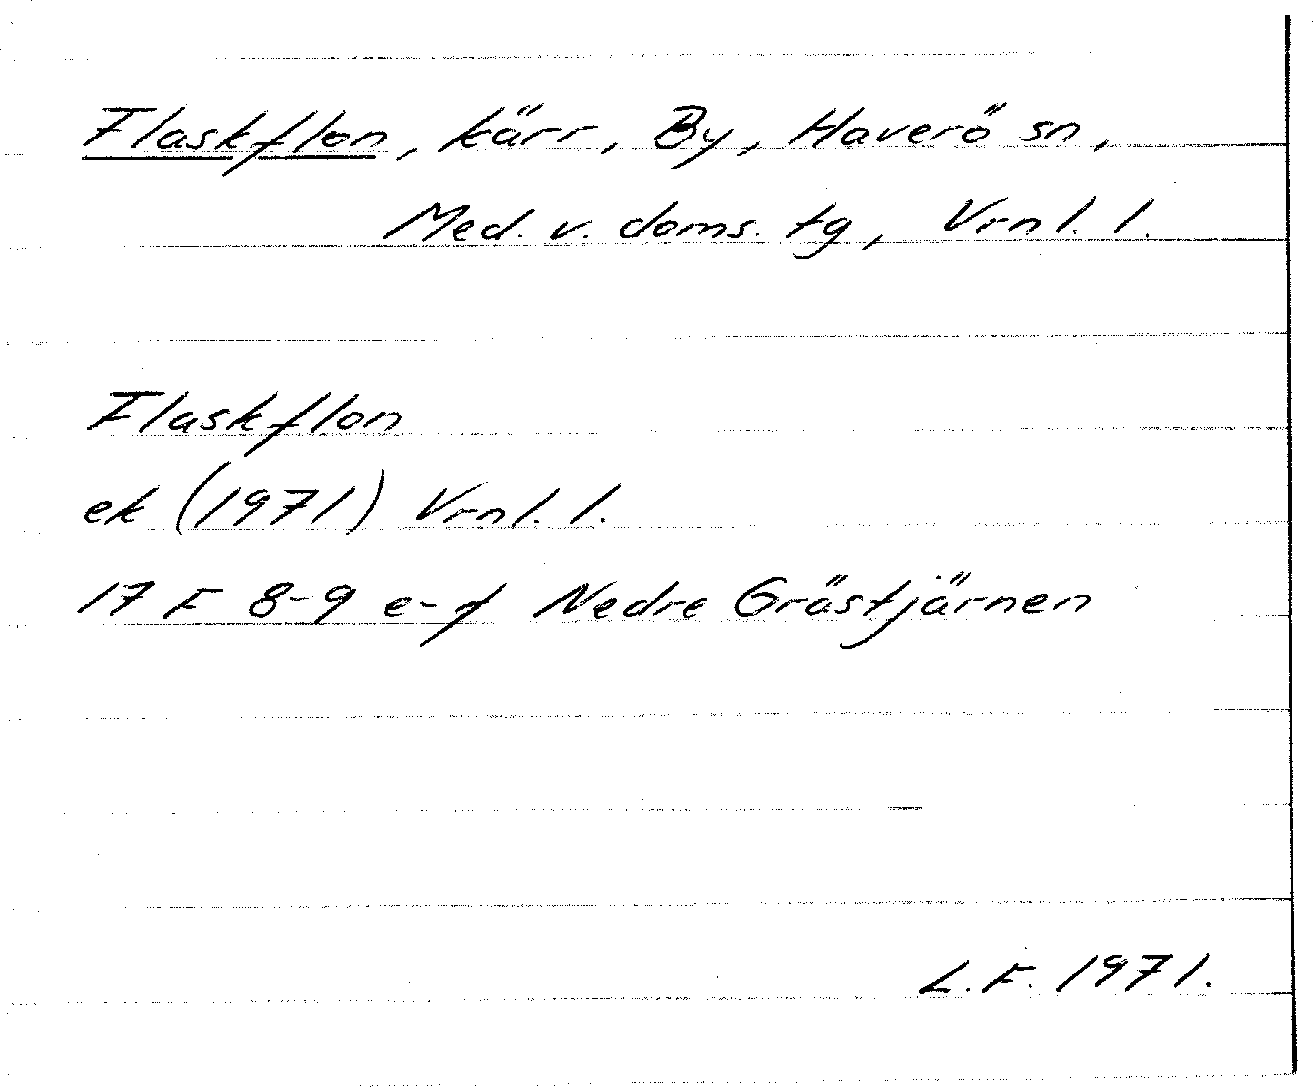 Flaskflon, kärr, By, Haverö sn,
Med. v. doms. tg, Vrnl. l.
Flaskflon
ek (1971) Vrnl. l.
17 F 8-9 e-f Nedre Grästjärnen
L.F. 1971.